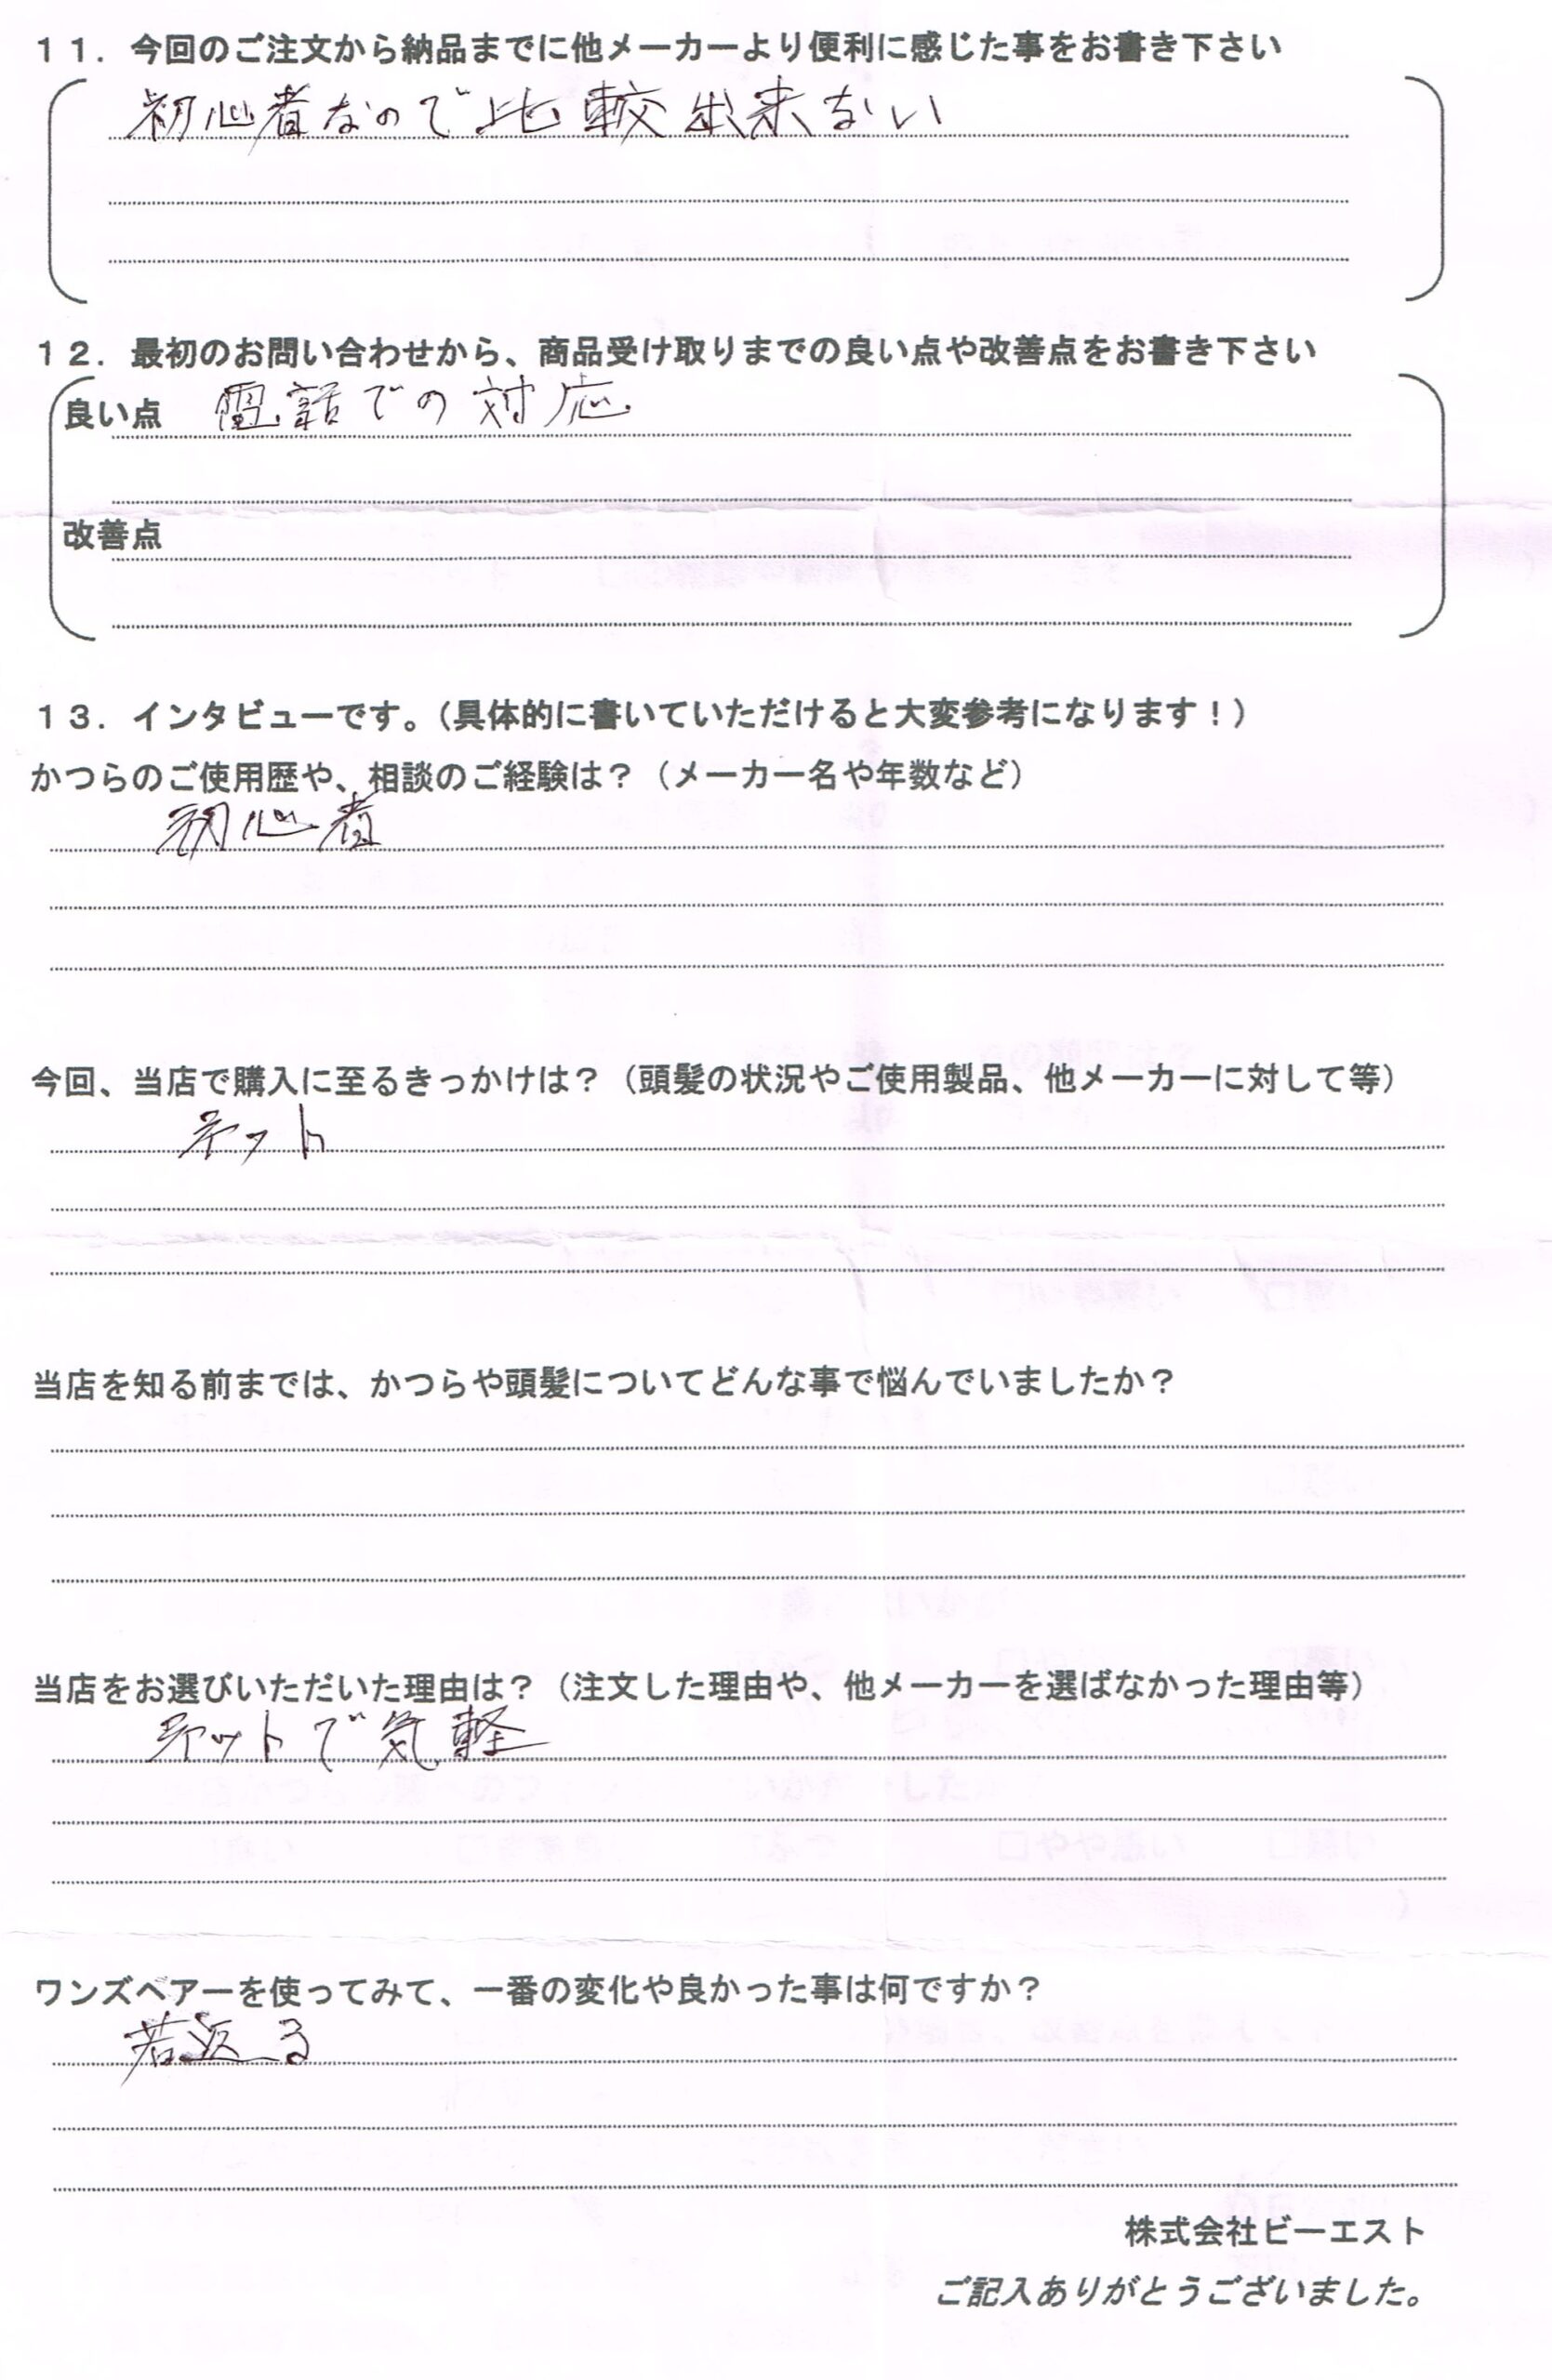 １１．今回のご注文から納品までに他メーカーより便利に感じた事をお書き下さい
初心者なので比較出来ない
１２．最初のお問い合わせから、商品受け取りまでの良い点や改善点をお書き下さい
良い点 電話での対応
改善点
１３．インタビューです。（具体的に書いていただけると大変参考になります！）
かつらのご使用歴や、相談のご経験は？（メーカー名や年数など）
初心者
今回、当店で購入に至るきっかけは？（頭髪の状況やご使用製品、他メーカーに対して等）
ネット
当店を知る前までは、かつらや頭髪についてどんな事で悩んでいましたか？
当店をお選びいただいた理由は？（注文した理由や、他メーカーを選ばなかった理由等）
ネットで気軽
ワンズヘアーを使ってみて、一番の変化や良かった事は何ですか？
若返る
株式会社ビーエスト
ご記入ありがとうございました。